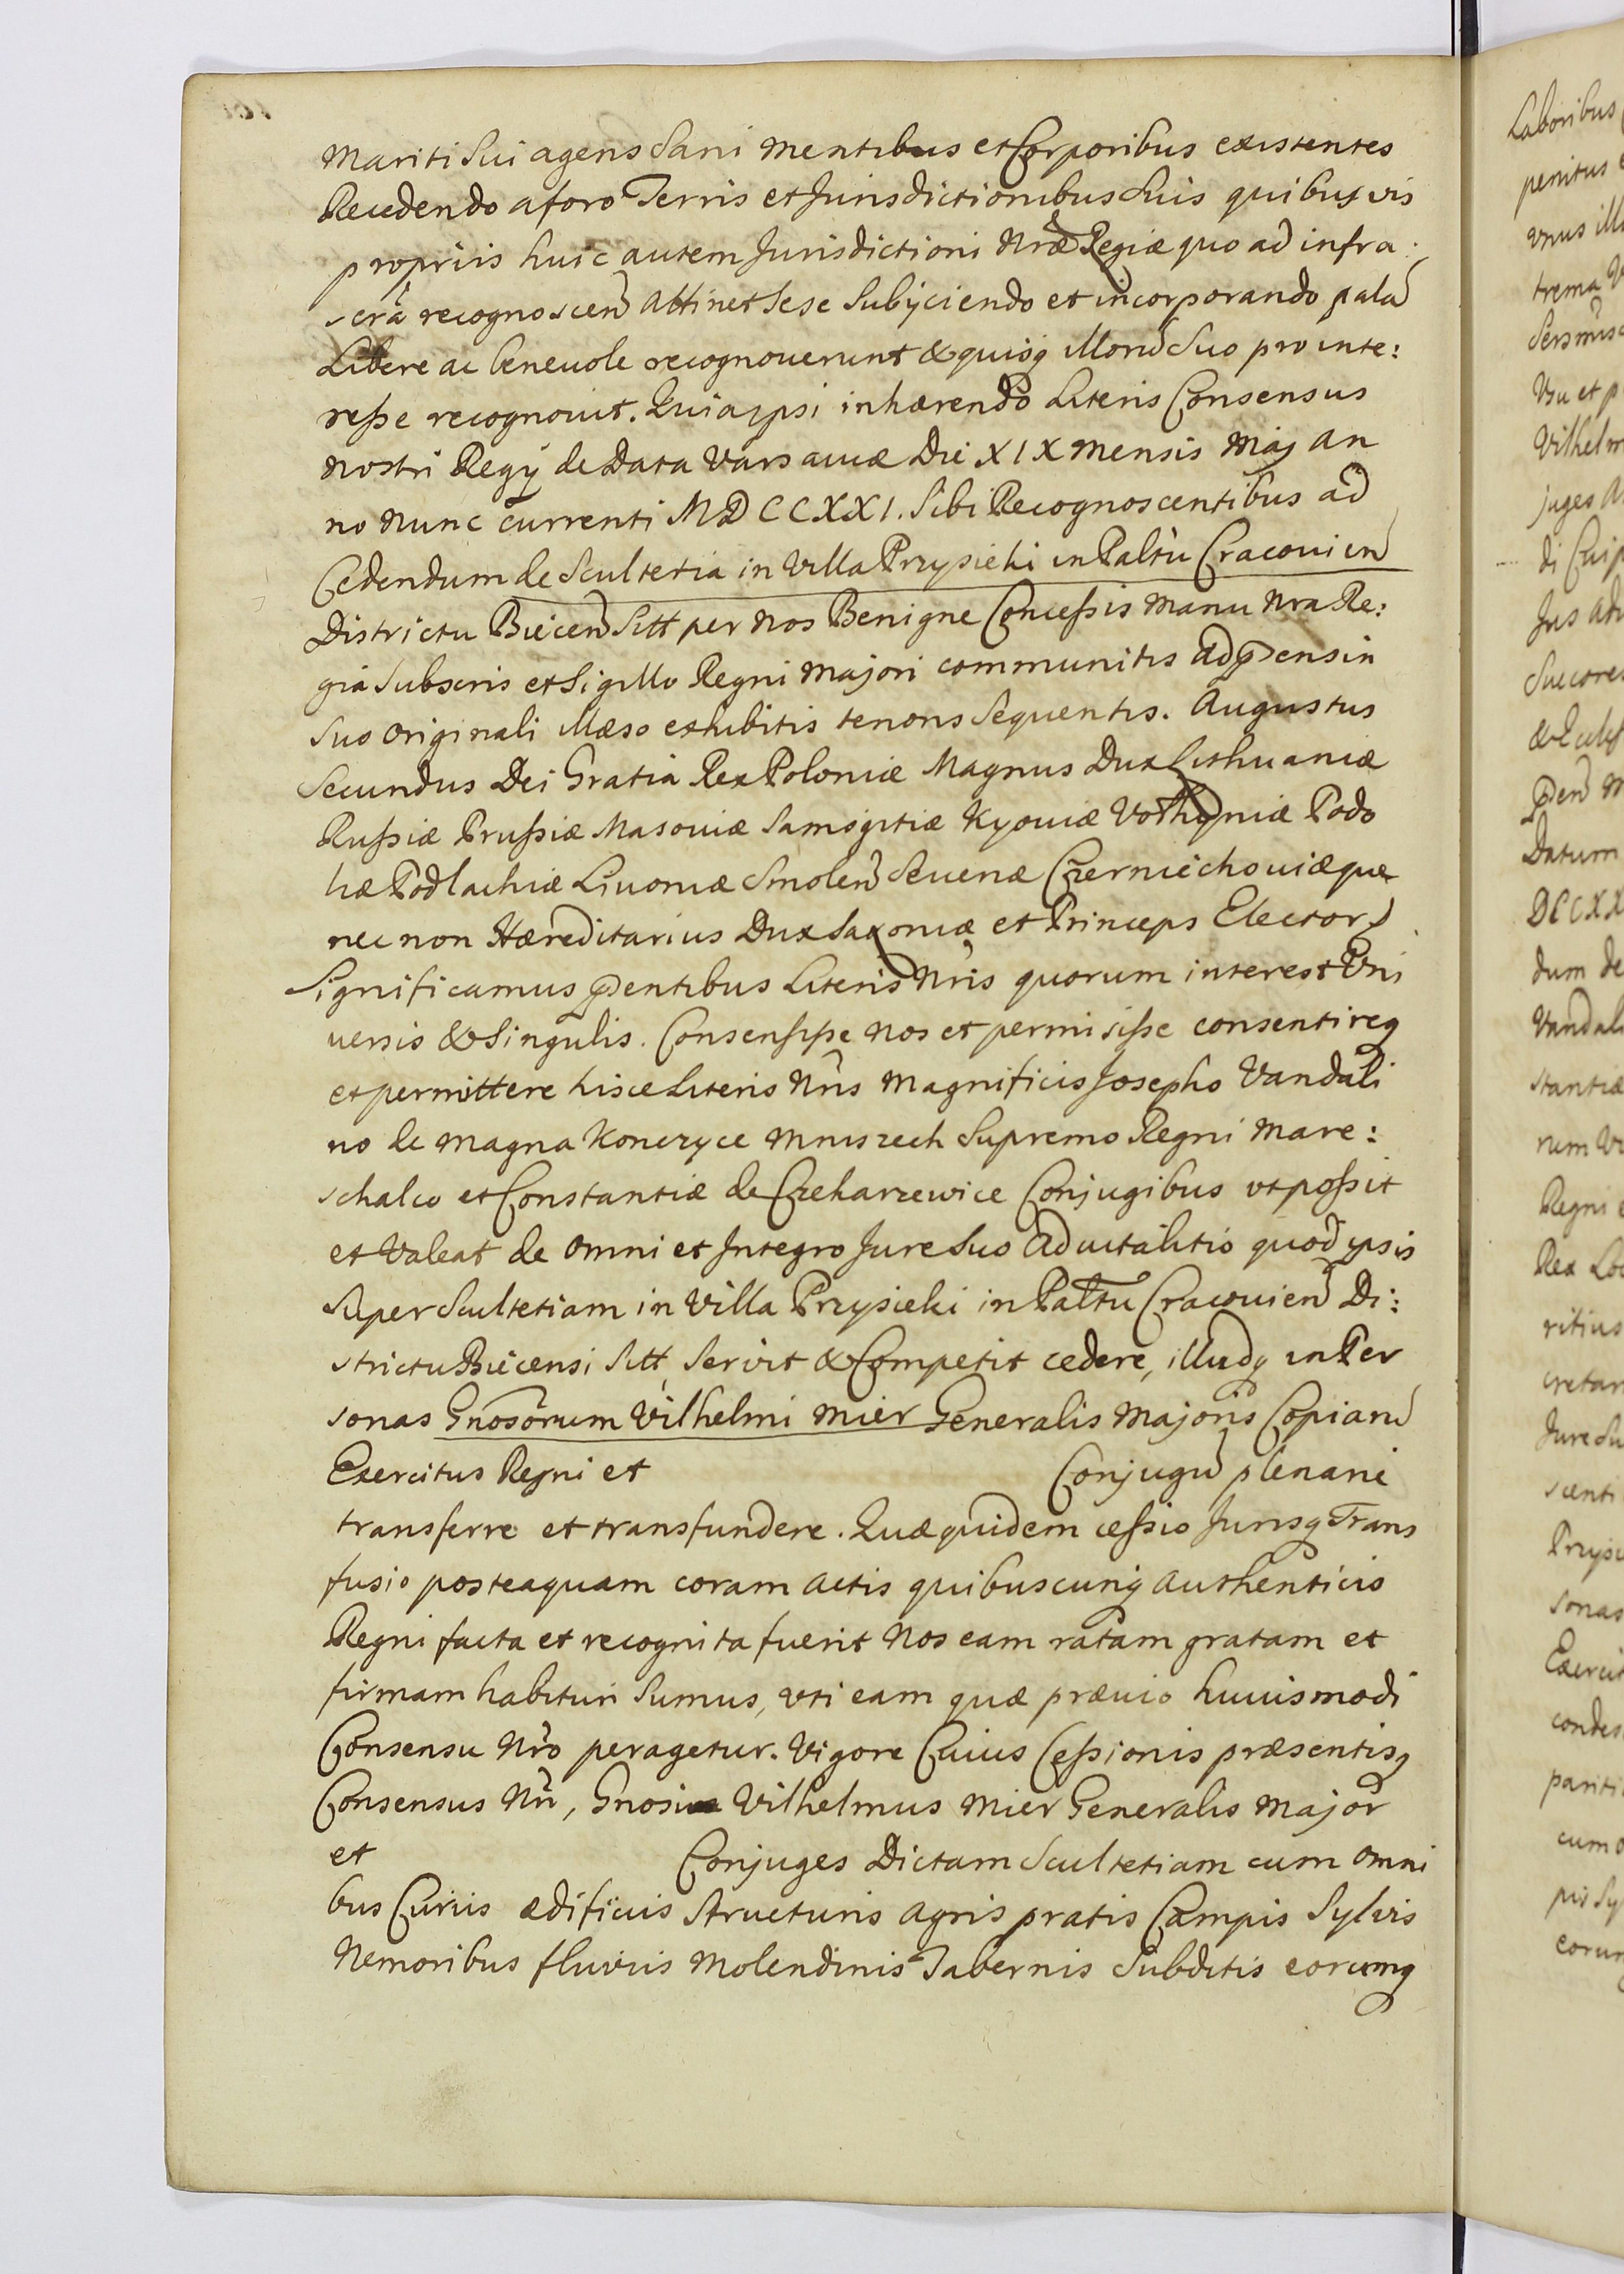 Mariti Sui agens Sani mentibus et Corporibus existentes
Recedendo a foro Terris et Jurisdictionibus Suis quibusvis
proprijs huic autem Jurisdictioni Nrae Regiae quo ad infra:
scra recognoscen attinet Sese Subijciendo et incorporando pala
Libere ac beneuole recognouerunt & quisq illorū Suo pro inte:
resse recognouit. Quia ipsi inhaerendo Literis Consensus
nostri Regij de Data Varsauiae Die XIX mensis Maij an
no nunc currenti MDCCXXI. Sibi Recognoscentibus ad
Cedendum de Scultetia in Villa Przysieki in Paltu Cracouien
Districtu Biecen Sitt per nos Benigne Concessis manu nra Re:
gia Subscris et Sigillo Regni Majori communitis ad p̄sens in
Suo Originali illaeso exhibitis tenoris Sequentis. Augustus
Secundus Dei Gratia Rex Poloniae Magnus Dux Lithuaniae
Russiae Prussiae Masouiae Samogitiae Kyouiae Volhyniae Podo
liae Podlachiae Liuoniae Smolen Seueriae Czerniechouiaeque
nec non Haereditarius Dux Saxoniae et Princeps Elector
Significamus p̄sentibus Literis Nris quorum interest Uni
uersis & Singulis. Consensisse nos et permisisse consentireq
et permittere hisce Literis Nris Magnificis Josepho Vandali
no de Magna Konczyce Mniszech Supremo Regni Mare:
schalco et Constantiae de Czekarzewice Conjugibus ut possit
et Valeat de omni et Integro Jure Suo Aduitalitio quod ipsis
Super Scultetiam in Villa Przysieki in Paltu Cracouien Di:
strictu Biecensi Sitt, Servit & Competit cedere, illudq in Per
sonas Gnosorum Vilhelmi Mier Generalis Majoris Copiarū
Exercitus Regni et Conjugū plenarie
transferre et transfundere. Quae quidem cessio Jurisq Trans
fusio posteaquam coram Actis quibuscunq Authenticis
Regni facta et recognita fuerit Nos eam ratam gratam et
firmam habituri Sumus, uti eam quae praeuio huiusmodi
Consensu Nro peragetur. Vigore Cuius Cessionis praesentisq
Consensus Nri, Vilhelmus Mier Generalis Major
et Conjuges Dictam Scultetiam cum omni
bus Curiis aedificiis Structuris agris pratis Campis Sylvis
Nemoribus fluviis Molendinis Tabernis Subditis eorumq